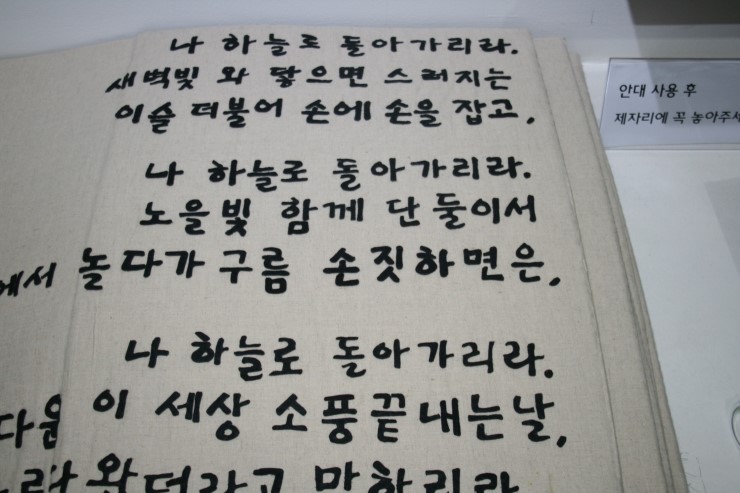 나 하늘로 돌아가리라.
새벽빛 와 닿으면 스러지는
이슬 더불어 손에 손을 잡고,
나 하늘로 돌아가리라.
노을빛 함께 단 둘이서
에서 놀다가 구름 손짓하면은,
나 하늘로 돌아가리라.
다운 이 세상 소풍 끝내는 날,
왔더라고 말하리라
안대 사용 후
제자리에 꼭 놓아주세